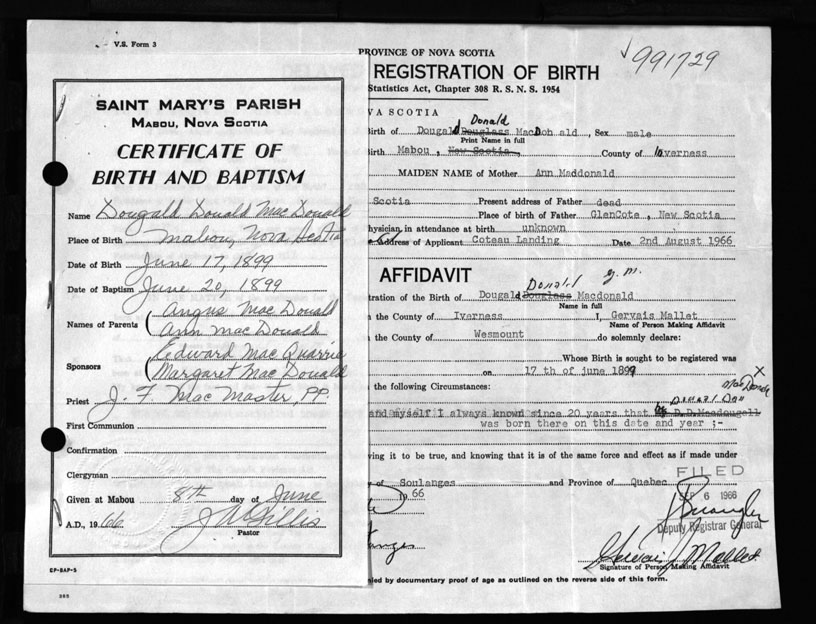 V.S. Form 3
SAINT MARY'S PARISH
MABOU, NOVA SCOTIA
CERTIFICATE OF
BIRTH AND BAPTISM
Name Dougald Donald Mac Donald
Place of Birth Mabou, Nova Scotia
Date of Birth June 17, 1899
Date of Baptism June 20, 1899
Names of Parents ( Angus Mac Donald
Ann Mac Donald
Sponsors ( Edward Mac Quarrie
Margaret Mac Donald
Priest J. F. Mac Master, P.P.
First Communion
Confirmation
Clergyman
Given at Mabou 8th day of June
A.D., 1966 Gillis
Pastor
CP-BAP-5
PROVINCE OF NOVA SCOTIA
991729
REGISTRATION OF BIRTH
Statistics Act, Chapter 308 R. S. N. S. 1954
VA SCOTIA
Donald
Birth of Dougald Douglass MacDonald, Sex male
Print Name in full
Birth Mabou, New Scotia, County of Inverness
MAIDEN NAME of Mother Ann Macdonald
Scotia Present address of Father dead
Place of birth of Father GlenCote, New Scotia
hysician in attendance at birth unknown
Address of Applicant Coteau Landing Date 2nd August 1966
AFFIDAVIT
Donald G.M.
tration of the Birth of Dougald Douglass Macdonald
Name in full
n the County of Iverness I, Gervais Mallet
Name of Person Making Affidavit
n the County of Wesmount do solemnly declare:
Whose Birth is sought to be registered was
on 17 th of june 1899 X
n the following Circumstances:
and myself I always known since 20 years that D.D.Macdougall
was born there on this date and year ;-
ving it to be true, and knowing that it is of the same force and effect as if made under
of Soulanges and Province of Quebec
FILED
19 66
SEP 6 1966
Deputy Registrar General
Gervais J Mallet
Signature of Person Making Affidavit
nied by documentary proof of age as outlined on the reverse side of this form.